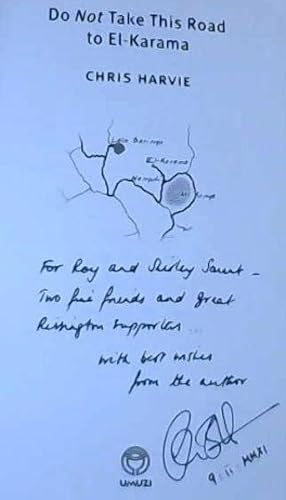 Do Not Take This Road
to El-Karama
CHRIS HARVIE
Lake Baringo
El-Karama
Nanyuki
Mt Kenya
For Roy and Shirley
Two fine friends and great
Rissington supporters
with best wishes
from the author
UMUZI